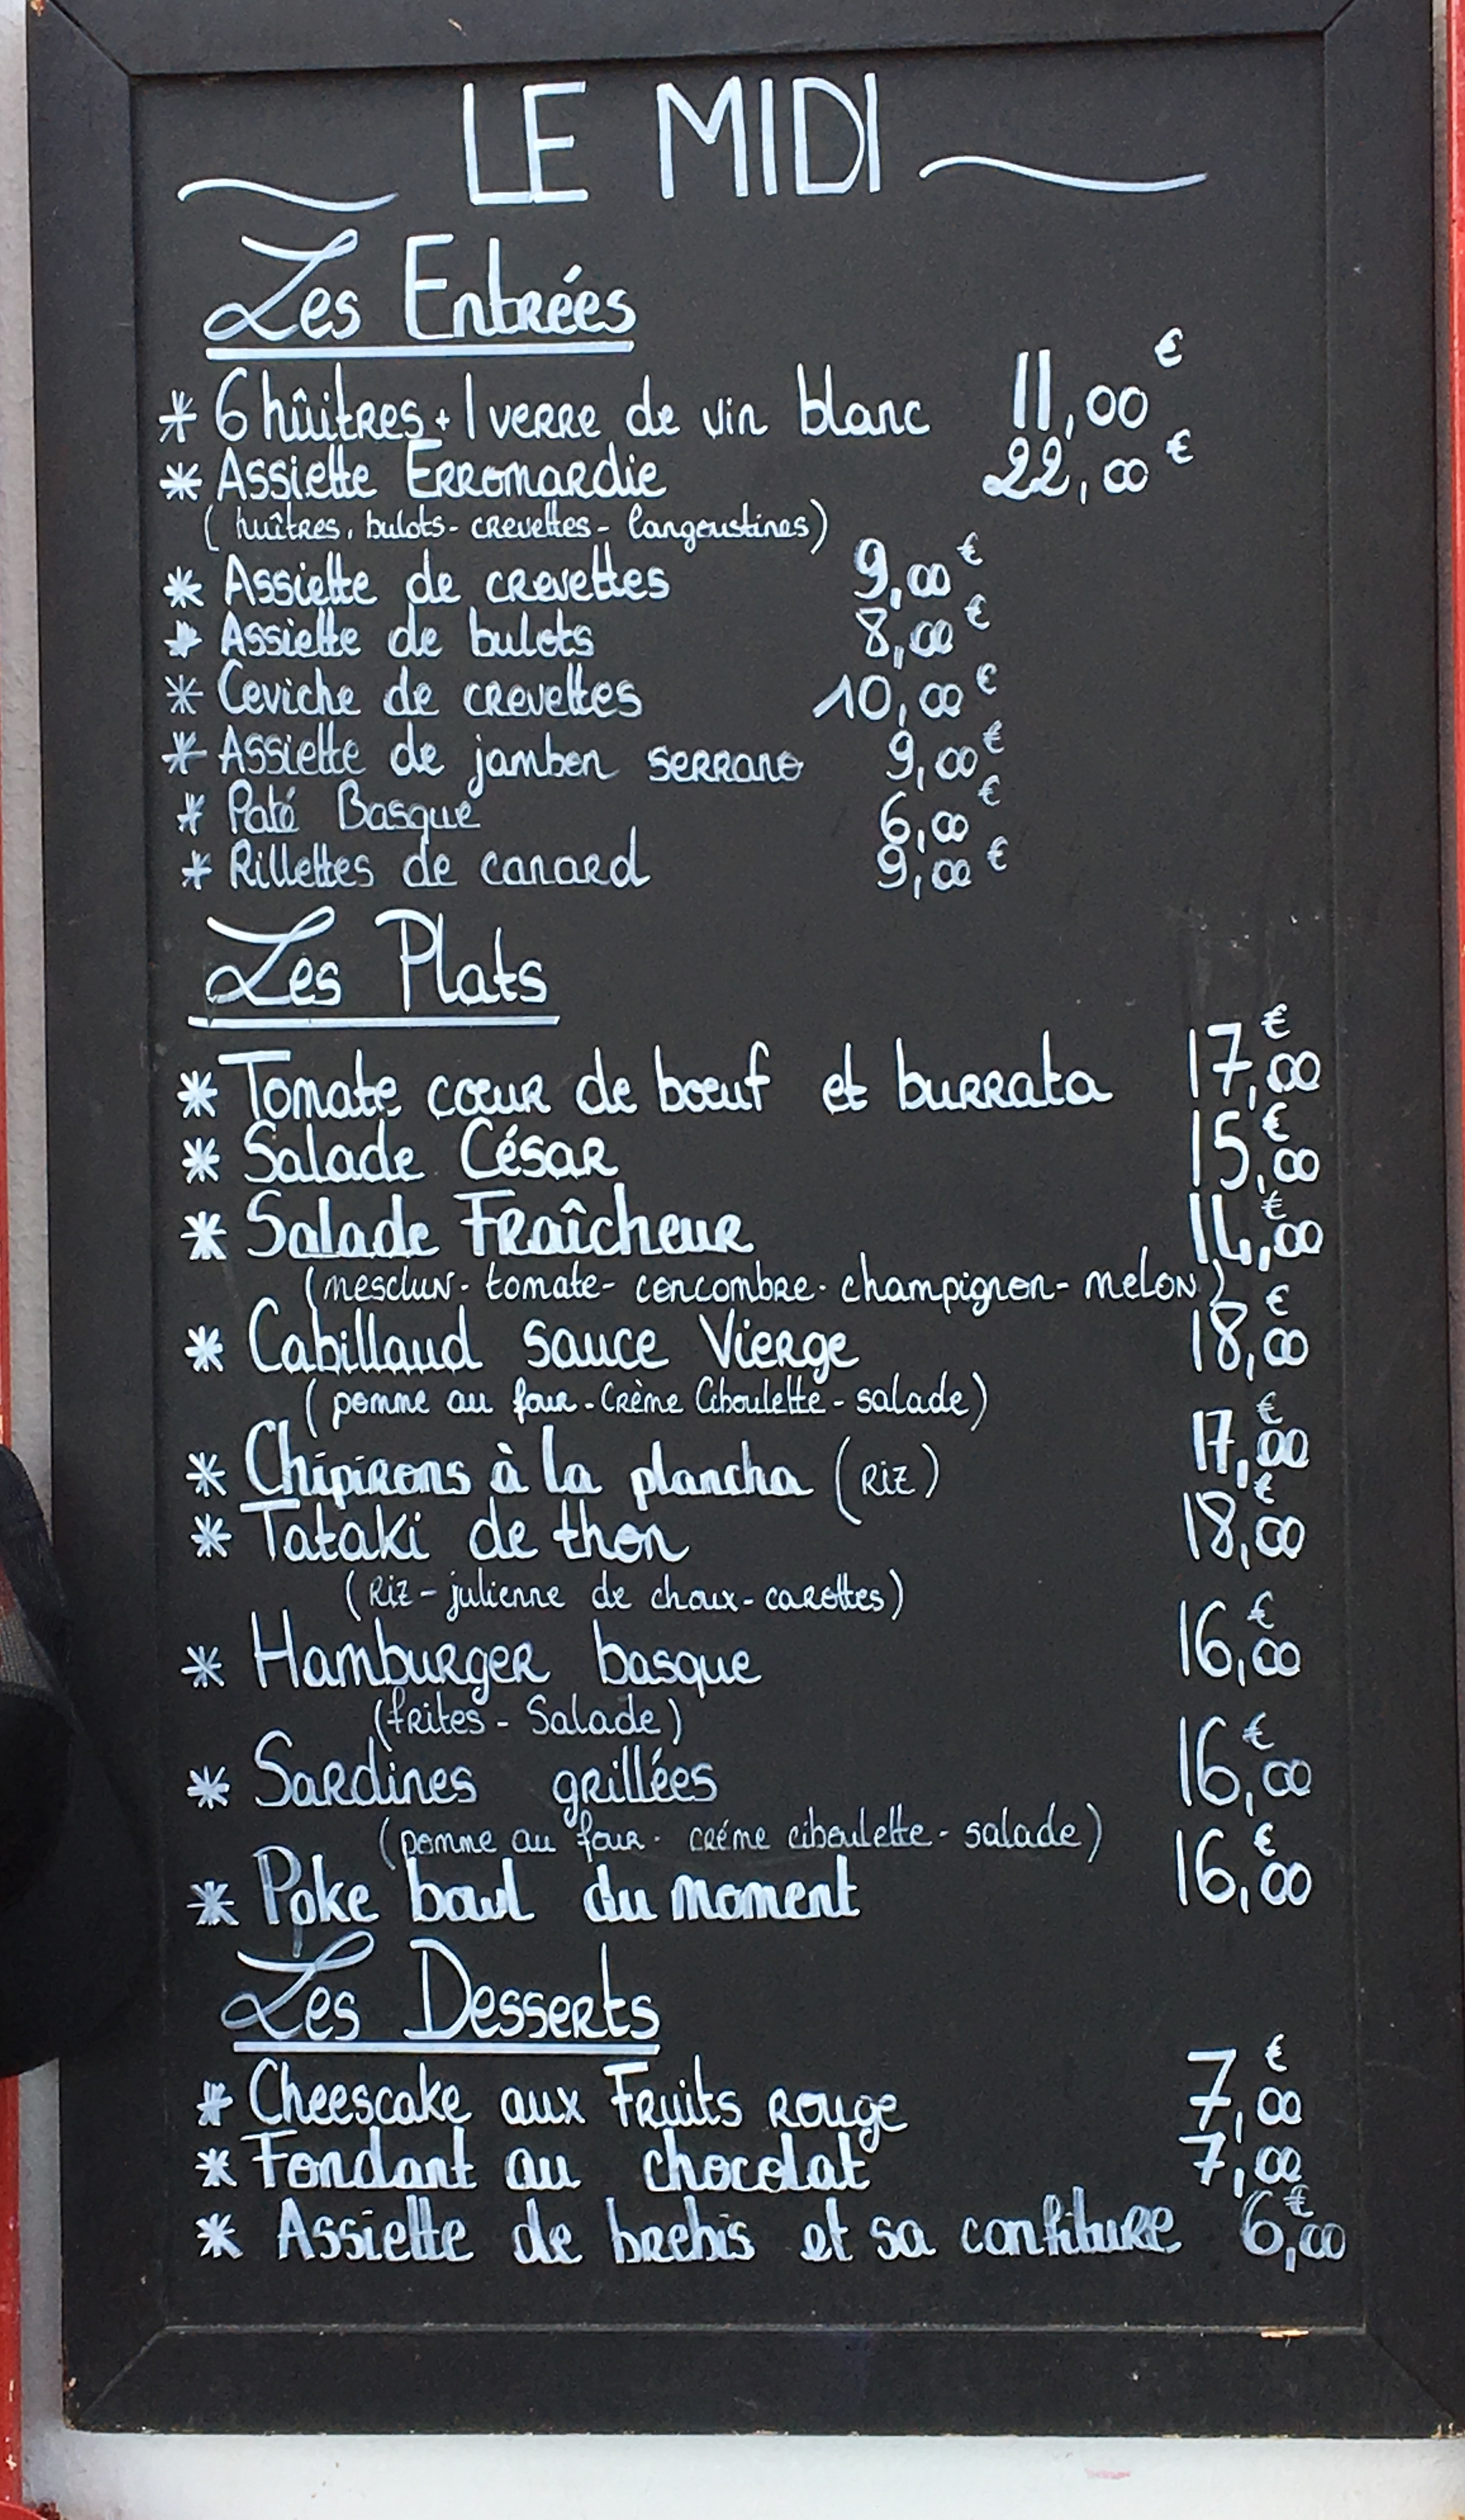 LE MIDI
Les Entrées
* 6 hûitres + 1 verre de vin blanc 11,00 €
* Assiette Erromardie 22,00 €
( huîtres, bulots - crevettes - langoustines )
* Assiette de crevettes 9,00 €
* Assiette de bulots 8,00 €
* Ceviche de crevettes 10,00 €
* Assiette de jambon serrano 9,00 €
* Paté Basque 6,00 €
* Rillettes de canard 9,00 €
Les Plats
* Tomate cœur de bœuf et burrata 17,00 €
* Salade César 15,00 €
* Salade Fraîcheur 14,00 €
(mesclun - tomate - concombre - champignon - melon)
* Cabillaud sauce Vierge 18,00 €
( pomme au four - Crème Ciboulette - salade )
* Chipirons à la plancha ( Riz ) 17,00 €
* Tataki de thon 18,00 €
( Riz - julienne de choux - carottes )
* Hamburger basque 16,00 €
(frites - Salade)
* Sardines grillées 16,00 €
( pomme au four - créme ciboulette - salade )
* Poke bowl du moment 16,00 €
Les Desserts
* Cheescake aux Fruits rouge 7,00 €
* Fondant au chocolat 7,00
* Assiette de brebis et sa confiture 6,00 €